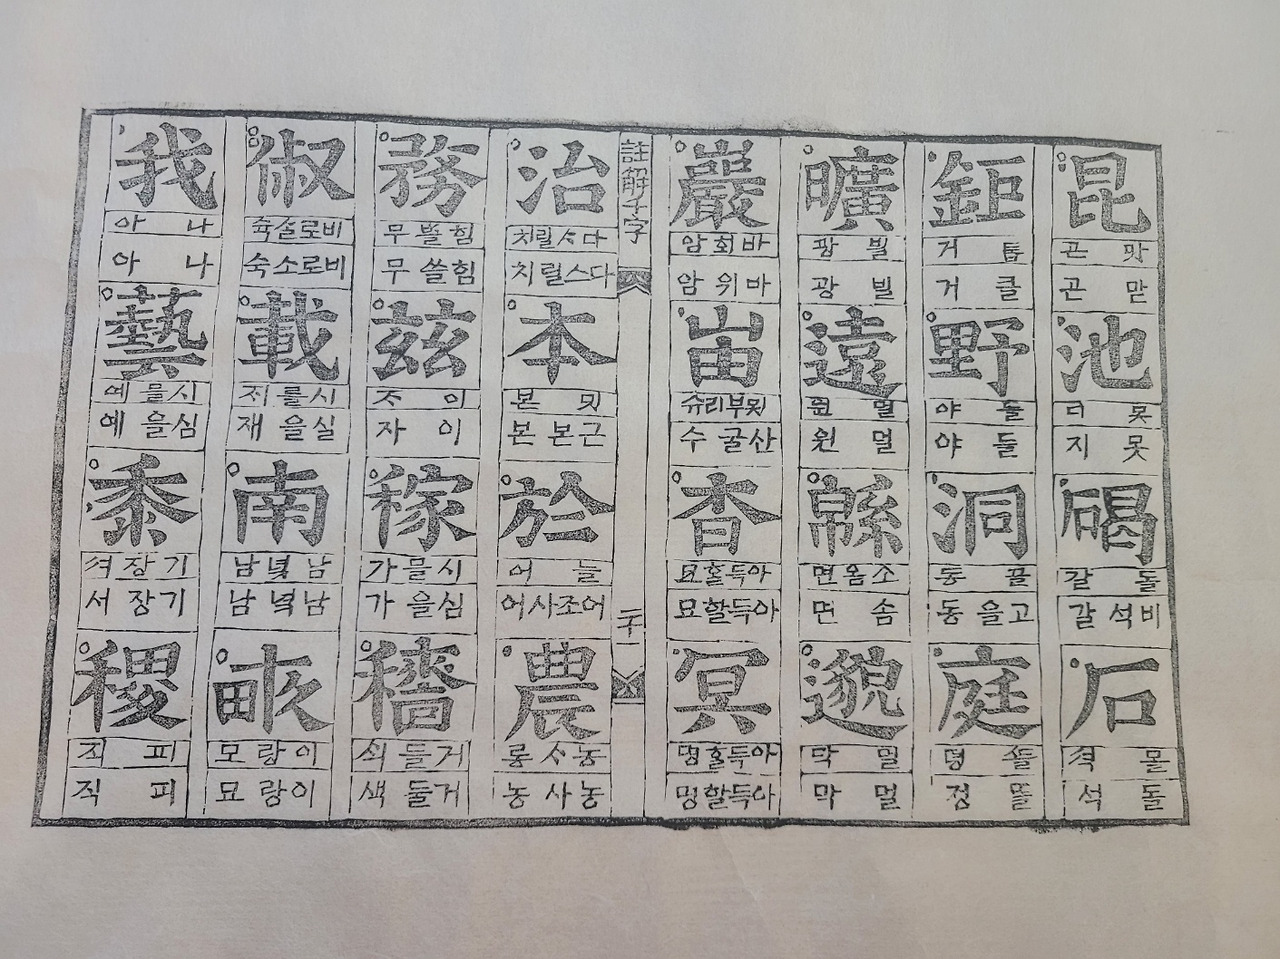 昆
곤 맛
곤 맏
池
디 못
지 못
碣
갈 돌
갈 석비
石
셕 돌
석 돌
鉅
거 톱
거 클
野
야 들
야 들
洞
동 골
동 을고
庭
뎡 뜰
정 뜰
曠
광 빌
광 빌
遠
원 멀
원 멀
緜
면 옴소
면 솜
邈
막 멀
막 멀
巖
암 회바
암 위바
峀
슈리부묏
수 굴산
杳
묘홀득아
묘할득아
冥
명홀득아
명할득아
註解千字
二十一
治
치릴ᄉ다
치럴스다
本
본 밋
본 본근
於
어 늘
어사조어
農
롱ᄉ농
농사농
務
무쁠힘
무쓸힘
玆
ᄌ 이
자 이
稼
가믈시
가을심
穡
ᄉᆡᆨ들거
색둘거
俶
슉솔로비
숙소로비
載
ᄌᆡ를시
재을실
南
남녁남
남녘남
畝
모랑이
묘랑이
我
아 나
아 나
藝
예믈시
예을심
黍
셔장기
서장기
稷
직 피
직 피